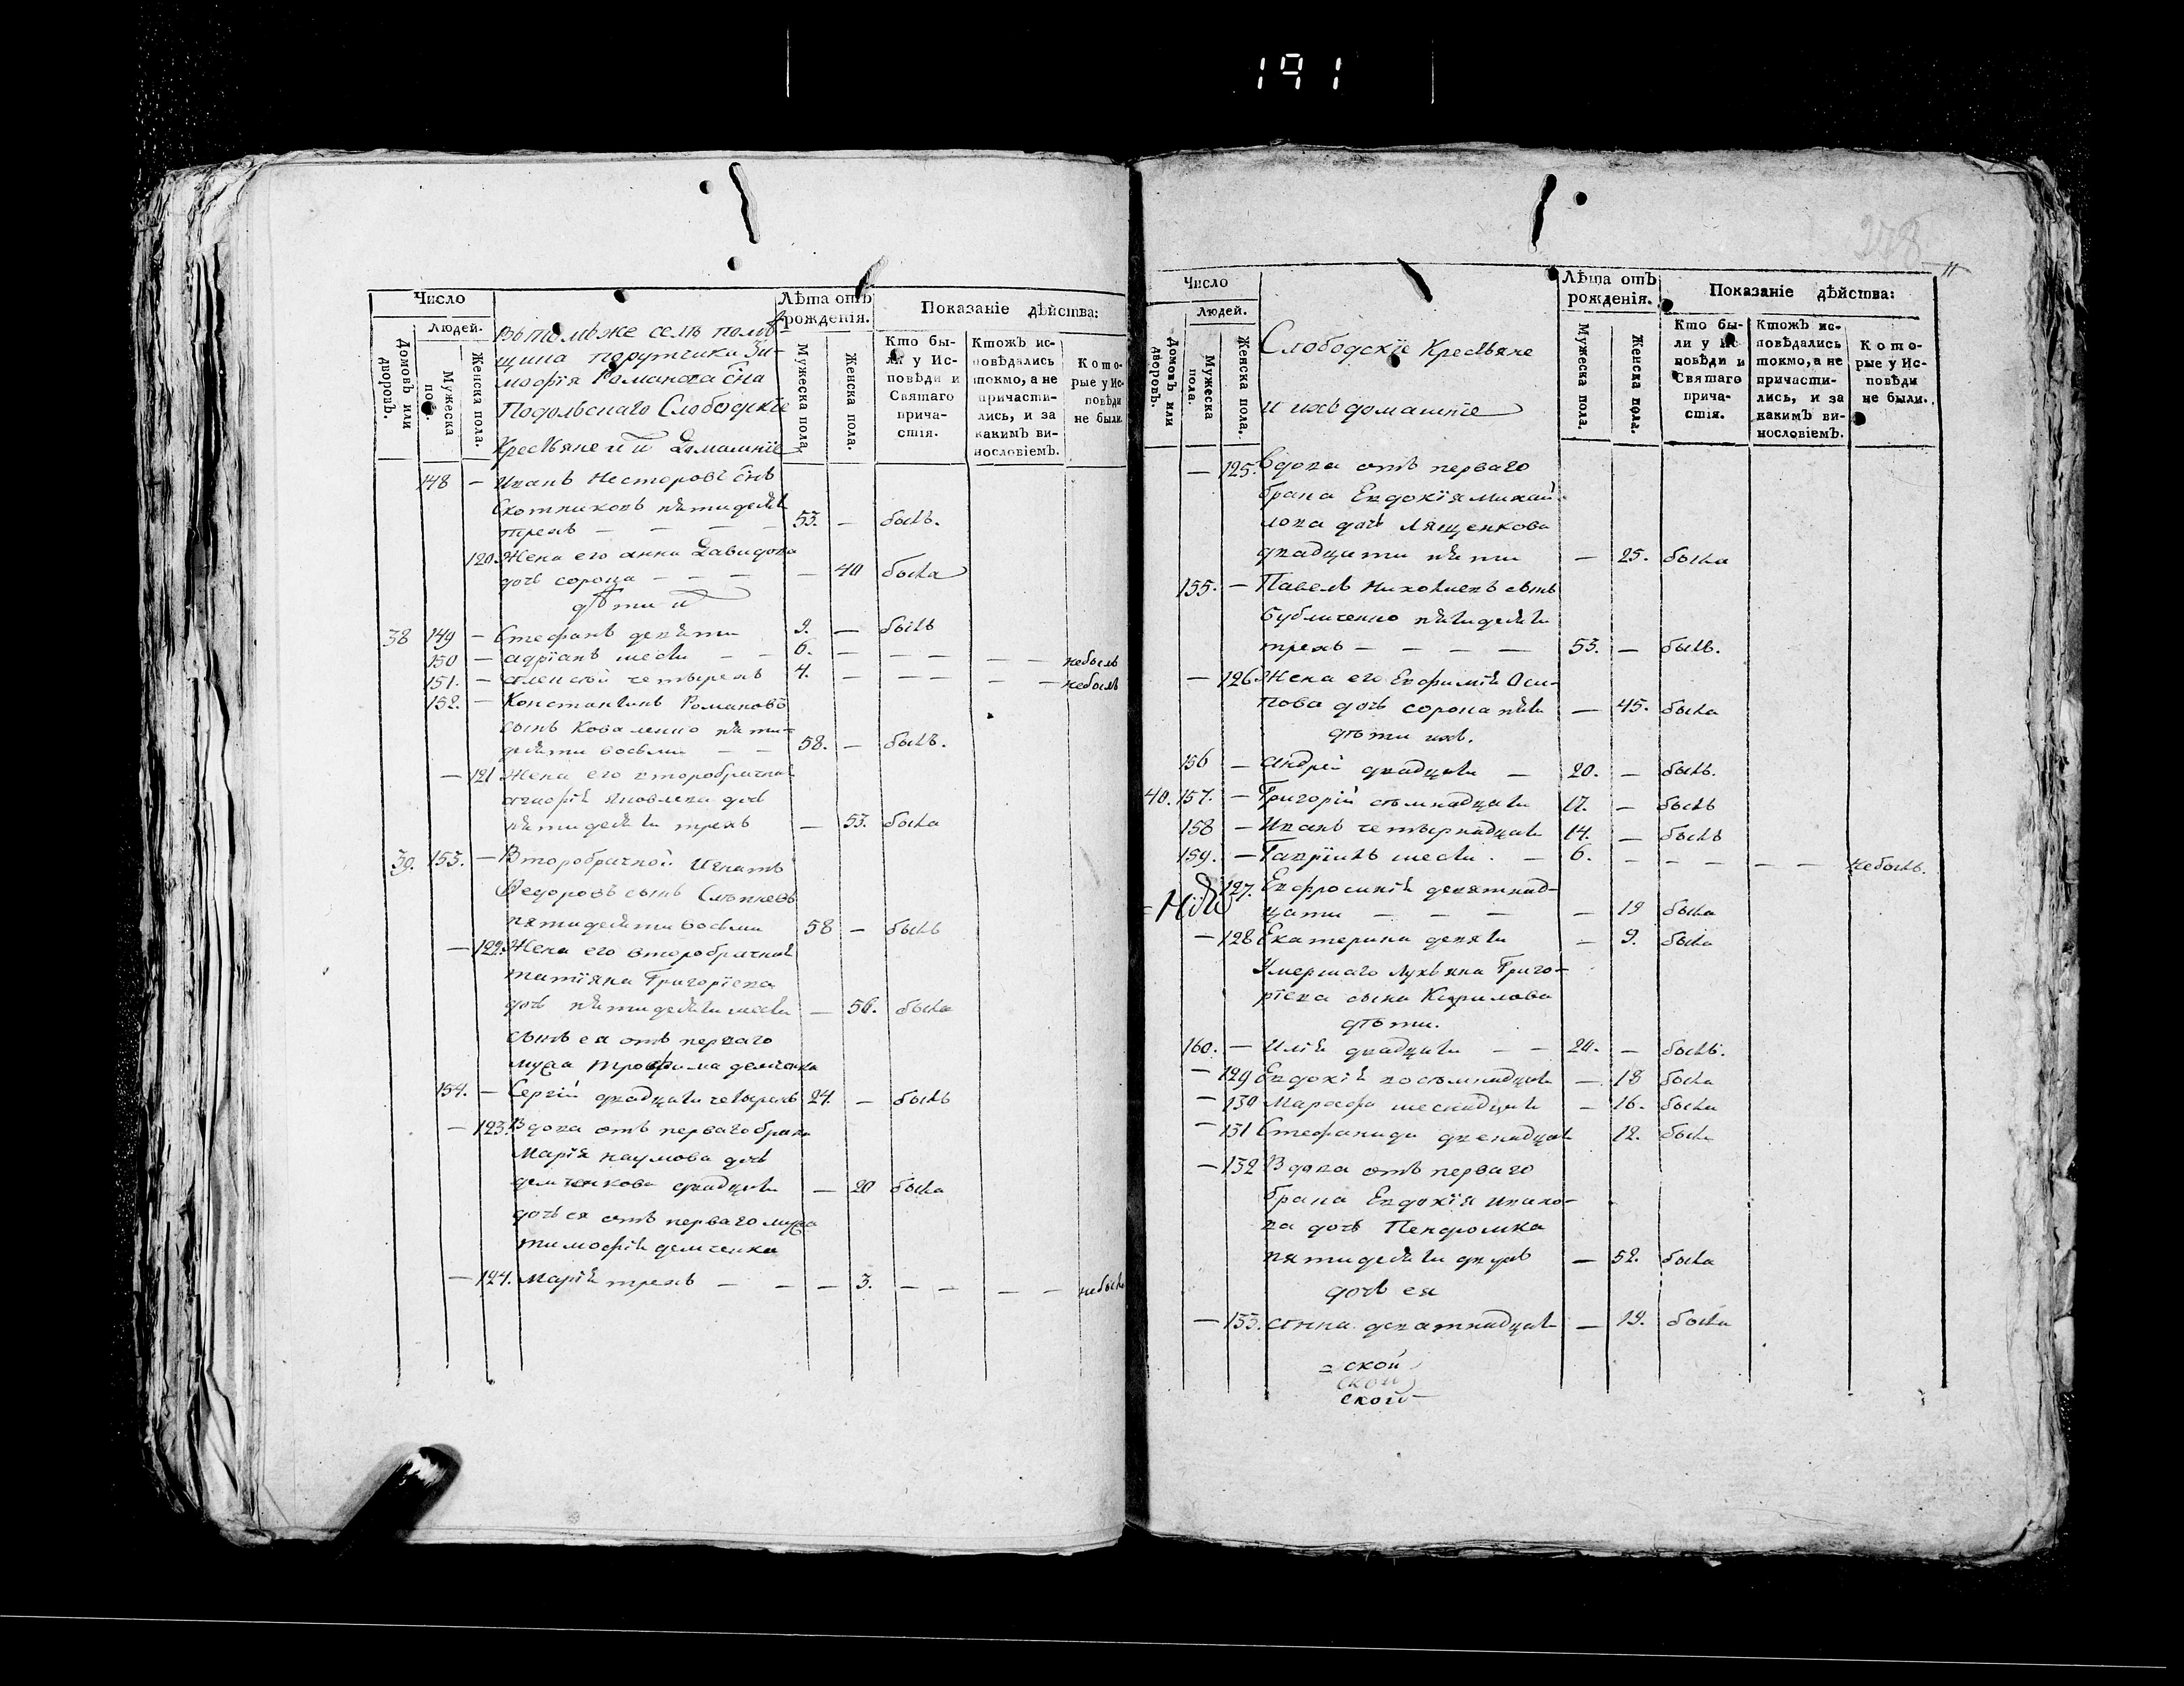 191
278
Число
Людей.
Домовъ или дворовъ.
Мужеска пола.
Женска пола.
Въ томъ же селѣ помѣ-
щика порутчика Ти-
мофѣя Романова сна
Подольскаго Слободскіе
Крестьяне и их Домашніе
Лѣта отъ рожденія.
Мужеска пола.
Женска пола.
Показаніе дѣйства:
Кто бы-
ли у Ис-
повѣди и
Святаго
прича-
стія.
Ктожъ ис-
повѣдались
токмо, а не
причасти-
лись, и за
какимъ ви-
нословіемъ.
Кото-
рые у Ис-
повѣди
не были.
148 — Иванъ Несторовъ снъ
Скотниковъ пятидесятъ
трехъ — — — — 53. — былъ.
120. Жена его Анна Давидова
дочь сорока — — — — 40 была
дѣти их
38 149 — Стефанъ девяти 9. — былъ
150 — Адріанъ шести — — 6. — — — — — небылъ
151. — Алексѣй четырехъ 4. — — — — — небылъ
152. — Константинъ Романовъ
сынъ Коваленко пяти-
десяти восьми — — 58. — былъ.
— 121 Жена его второбрачная
Агафія Яковлева дочь
пятидесяти трехъ — 53. была
39. 153. — Второбрачной Игнатъ
Федоровъ сынъ
пятидесяти восьми 58 — былъ
— 122. Жена его второбрачная
Татіяна Григоріева
дочь пятидесяти шести — 56. была
сынъ ея отъ перваго
мужа Трофима Демченка
154. — Сергій двадцати четырехъ 24. — былъ
— 123. Вдова отъ перваго брака
Марія Наумова дочь
Демченкова двадцати — 20 была
дочь ея отъ перваго мужа
Тимофія Демченка
— 124. Марія трехъ — — — 3. — — — — небыла
Число
Людей.
Домовъ или дворовъ.
Мужеска пола.
Женска пола.
Слободскіе Крестьяне
и ихъ домашніе
Лѣта отъ рожденія.
Мужеска пола.
Женска пола.
Показаніе дѣйства:
Кто бы-
ли у Ис-
повѣди и
Святаго
прича-
стія.
Ктожъ ис-
повѣдались
токмо, а не
причасти-
лись, и за
какимъ ви-
нословіемъ.
Кото-
рые у Ис-
повѣди
не были.
— 125. Вдова отъ перваго
брака Евдокія Михай-
лова дочь Лященкова
двадцати пяти — 25. была
155. — Павелъ Николаевъ сынъ
Бубличенко пятидесяти
трехъ — — — — 53. — былъ.
— 126 Жена его Евфимія Оси-
пова дочь сорока пяти — 45. была
дѣти ихъ.
156 — Андрей двадцати — 20. — былъ.
40. 157. — Григорій семнадцати 17. — былъ
158 — Иванъ четырнадцати 14. — былъ
159. — Гавріилъ шести. — 6. — — — — — небылъ.
127. Евфросинія девятнад-
цати — — — — 19 была
— 128 Екатерина девяти — 9. была
Умершаго Лукьяна Григо-
ріева сына Кирилова
дѣти.
160. — Илія двадцати — — 20. — былъ.
— 129 Евдокія восемнадцати — 18 была
— 130 Марѳа шеснадцати — 16. была
— 131 Стефанида двенадцати 12. была
— 132 Вдова отъ перваго
брака Евдокія Ивано-
ва дочь
пятидесяти двухъ — 52. была
дочь ея
— 133. Анна девятнадцати — 19. была
= ской
ской
ской